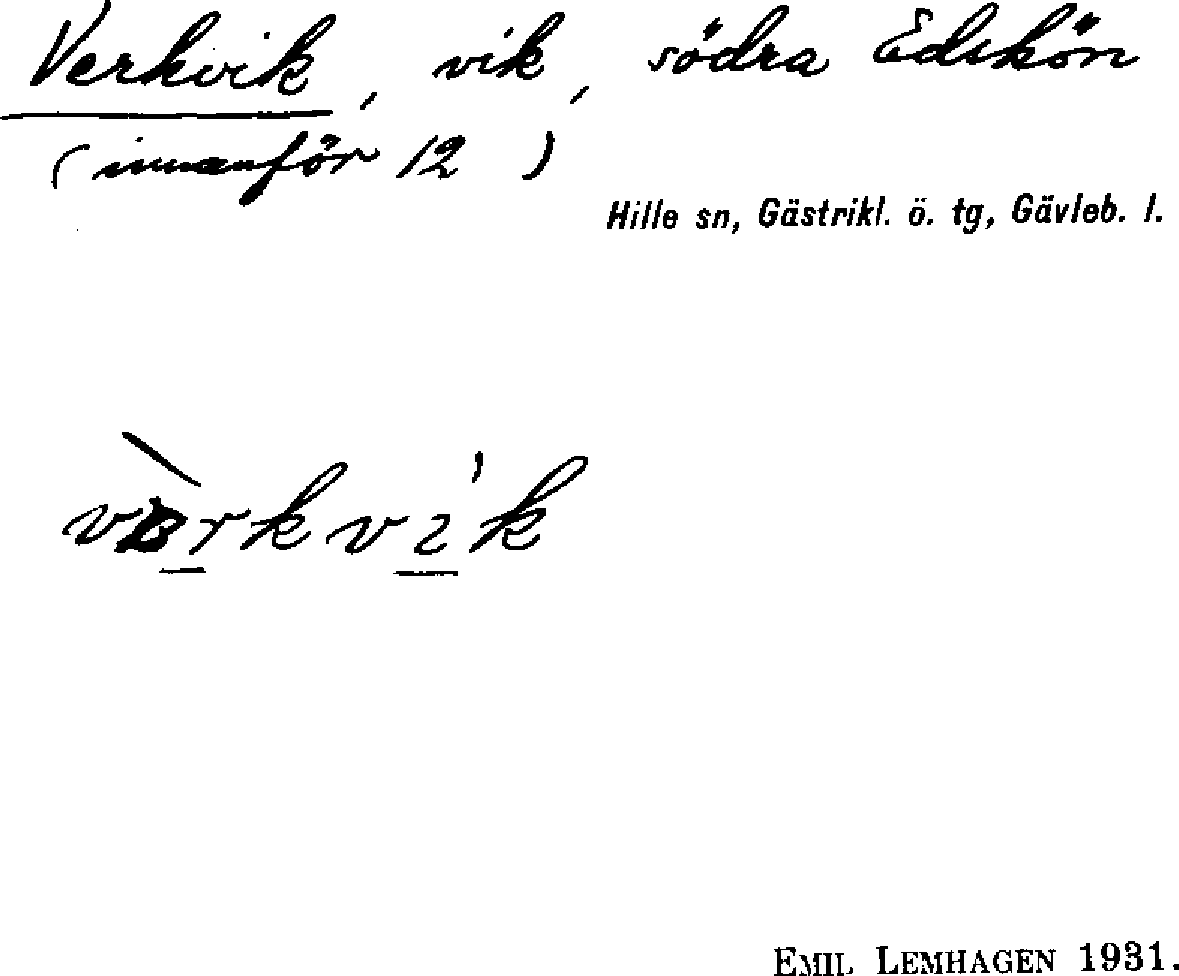 Verkvik, vik, södra Edskön
(innanför 12 )
Hille sn, Gästrikl. ö. tg, Gävleb. l.
EMIL LEMHAGEN 1931.